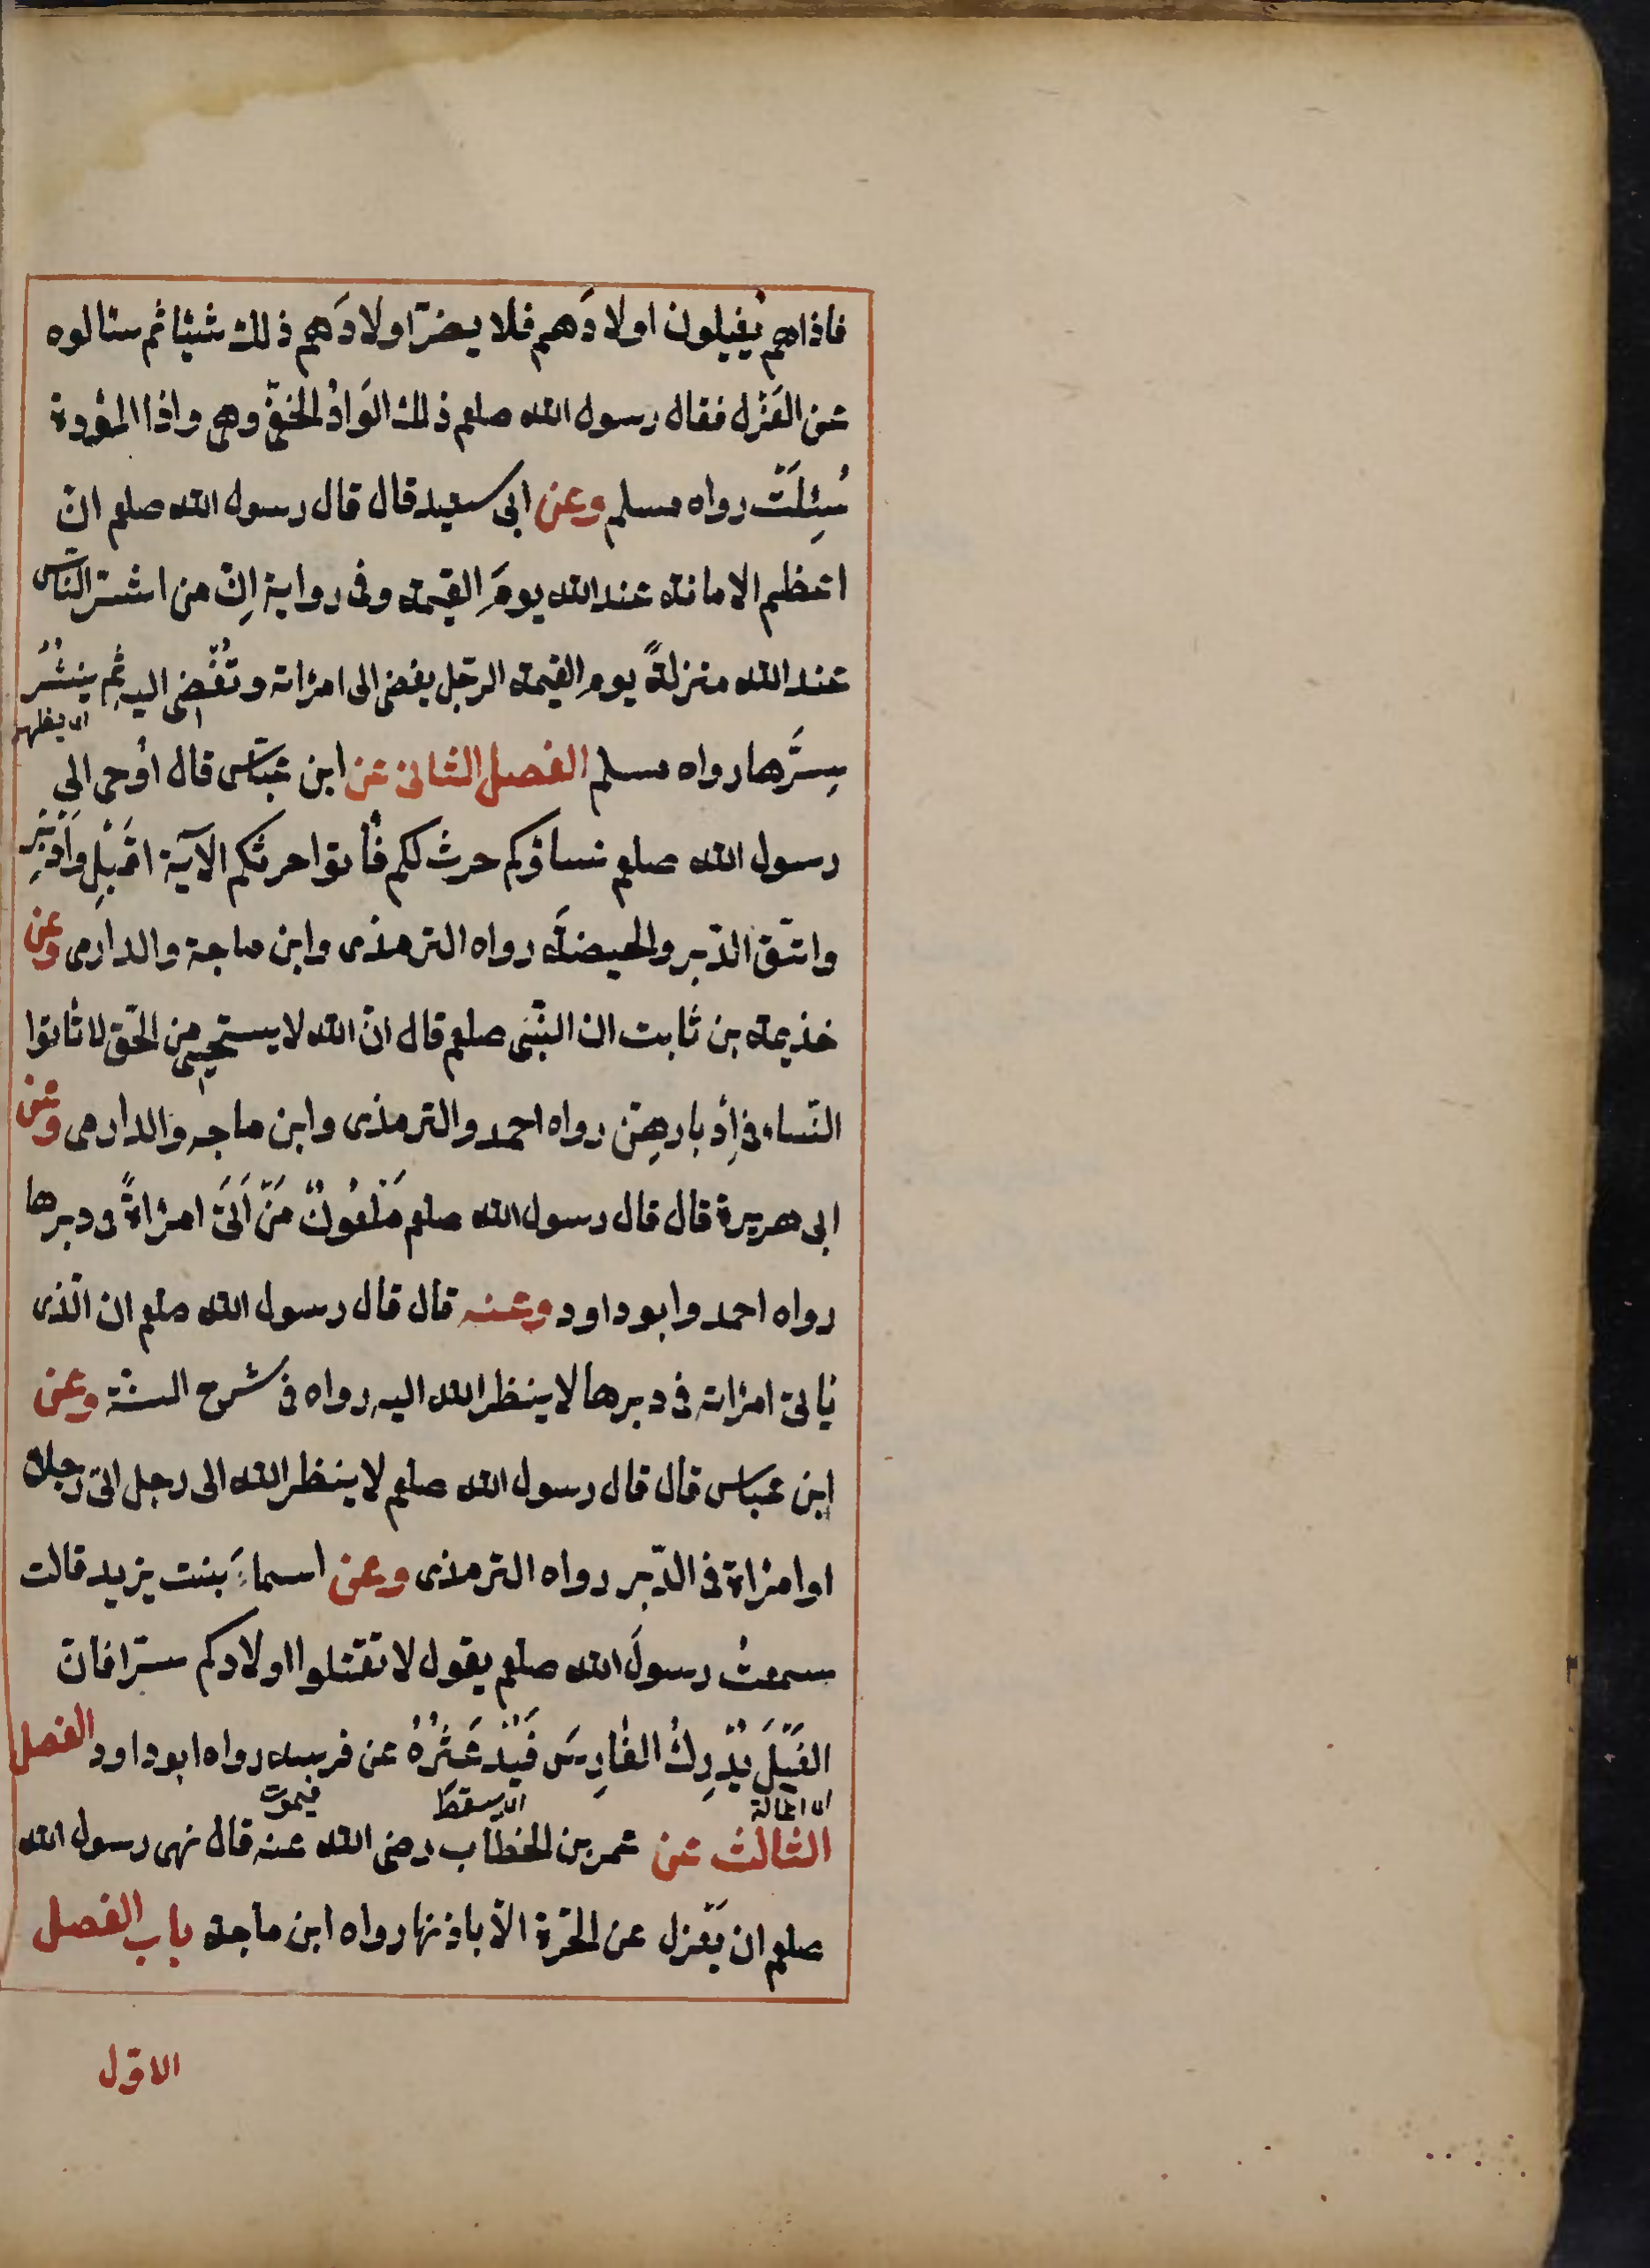 فاذاهم يُغيلون اولادَهم فلا يضرّ اولادَهم ذلك شيئا ثم سئالوه
عن العَزْل فقال رسول الله صلعم ذلك الوَادُ الخفىّ وهى واذا المؤدة
سُئِلَتْ رواه مسلم وعن ابى سعيد قال قال رسول الله صلعم انّ
اعظم الامانة عند الله يومَ القيمة وفى رواية اِنّ من اشتر النّاس
عند الله منزلةً يوم القيمة الرّجل يفضى الى امرْاته وتُفْضى اليه ثُم ينشُرُ
اى يظهر
سِرَّها رواه مسلم الفصل الثانى عن ابن عبّاس قال اُوحى الى
رسول الله صلعم نساؤكم حرث لكم فأتوا حرثكم الآية اقْبِلْ واَدْبِرْ
واتّق الدّبر والحيضةَ رواه الترمذى وابن ماجة والدارمى وعن
خذيمة بن ثابت ان النّبى صلعم قال انّ الله لا يستحيى من الحّق لا تأتوا
النّساء فى اَدبارهنّ رواه احمد والترمذى وابن ماجه والدارمى وعن
ابى هريرة قال قال رسول الله صلعم مَلْعُونٌ مَنْ اَتَىَ امرْاةً فى دبرها
رواه احمد وابو داود وعنه قال قال رسول الله صلعم ان الّذى
يأتى امرْاته فى دبرها لا ينظر الله اليه رواه فى شرح السّنة وعن
ابن عباس قال قال رسول الله صلعم لا ينظر الله الى رجل اتى رجلا
او امرْاة فى الدّبر رواه الترمذى وعن اسماءَ بنت يزيد قالت
سمعتُ رسولَ الله صلعم يقول لا تقتلوا اولادكم سّرا فانّ
الغَيْلَ يُدْرِكُ الفارِسَ فَيُدَعْثِرُهُ عن فرسه رواه ابو داود الفصل
اى اغالة اى يسقط فيموت
الثالث عن عمر بن الخطّاب رضى الله عنه قال نهى رسول الله
صلعم ان يَعْزل عن الحّرة الّا باذنها رواه ابن ماجة باب الفصل
الاوّل